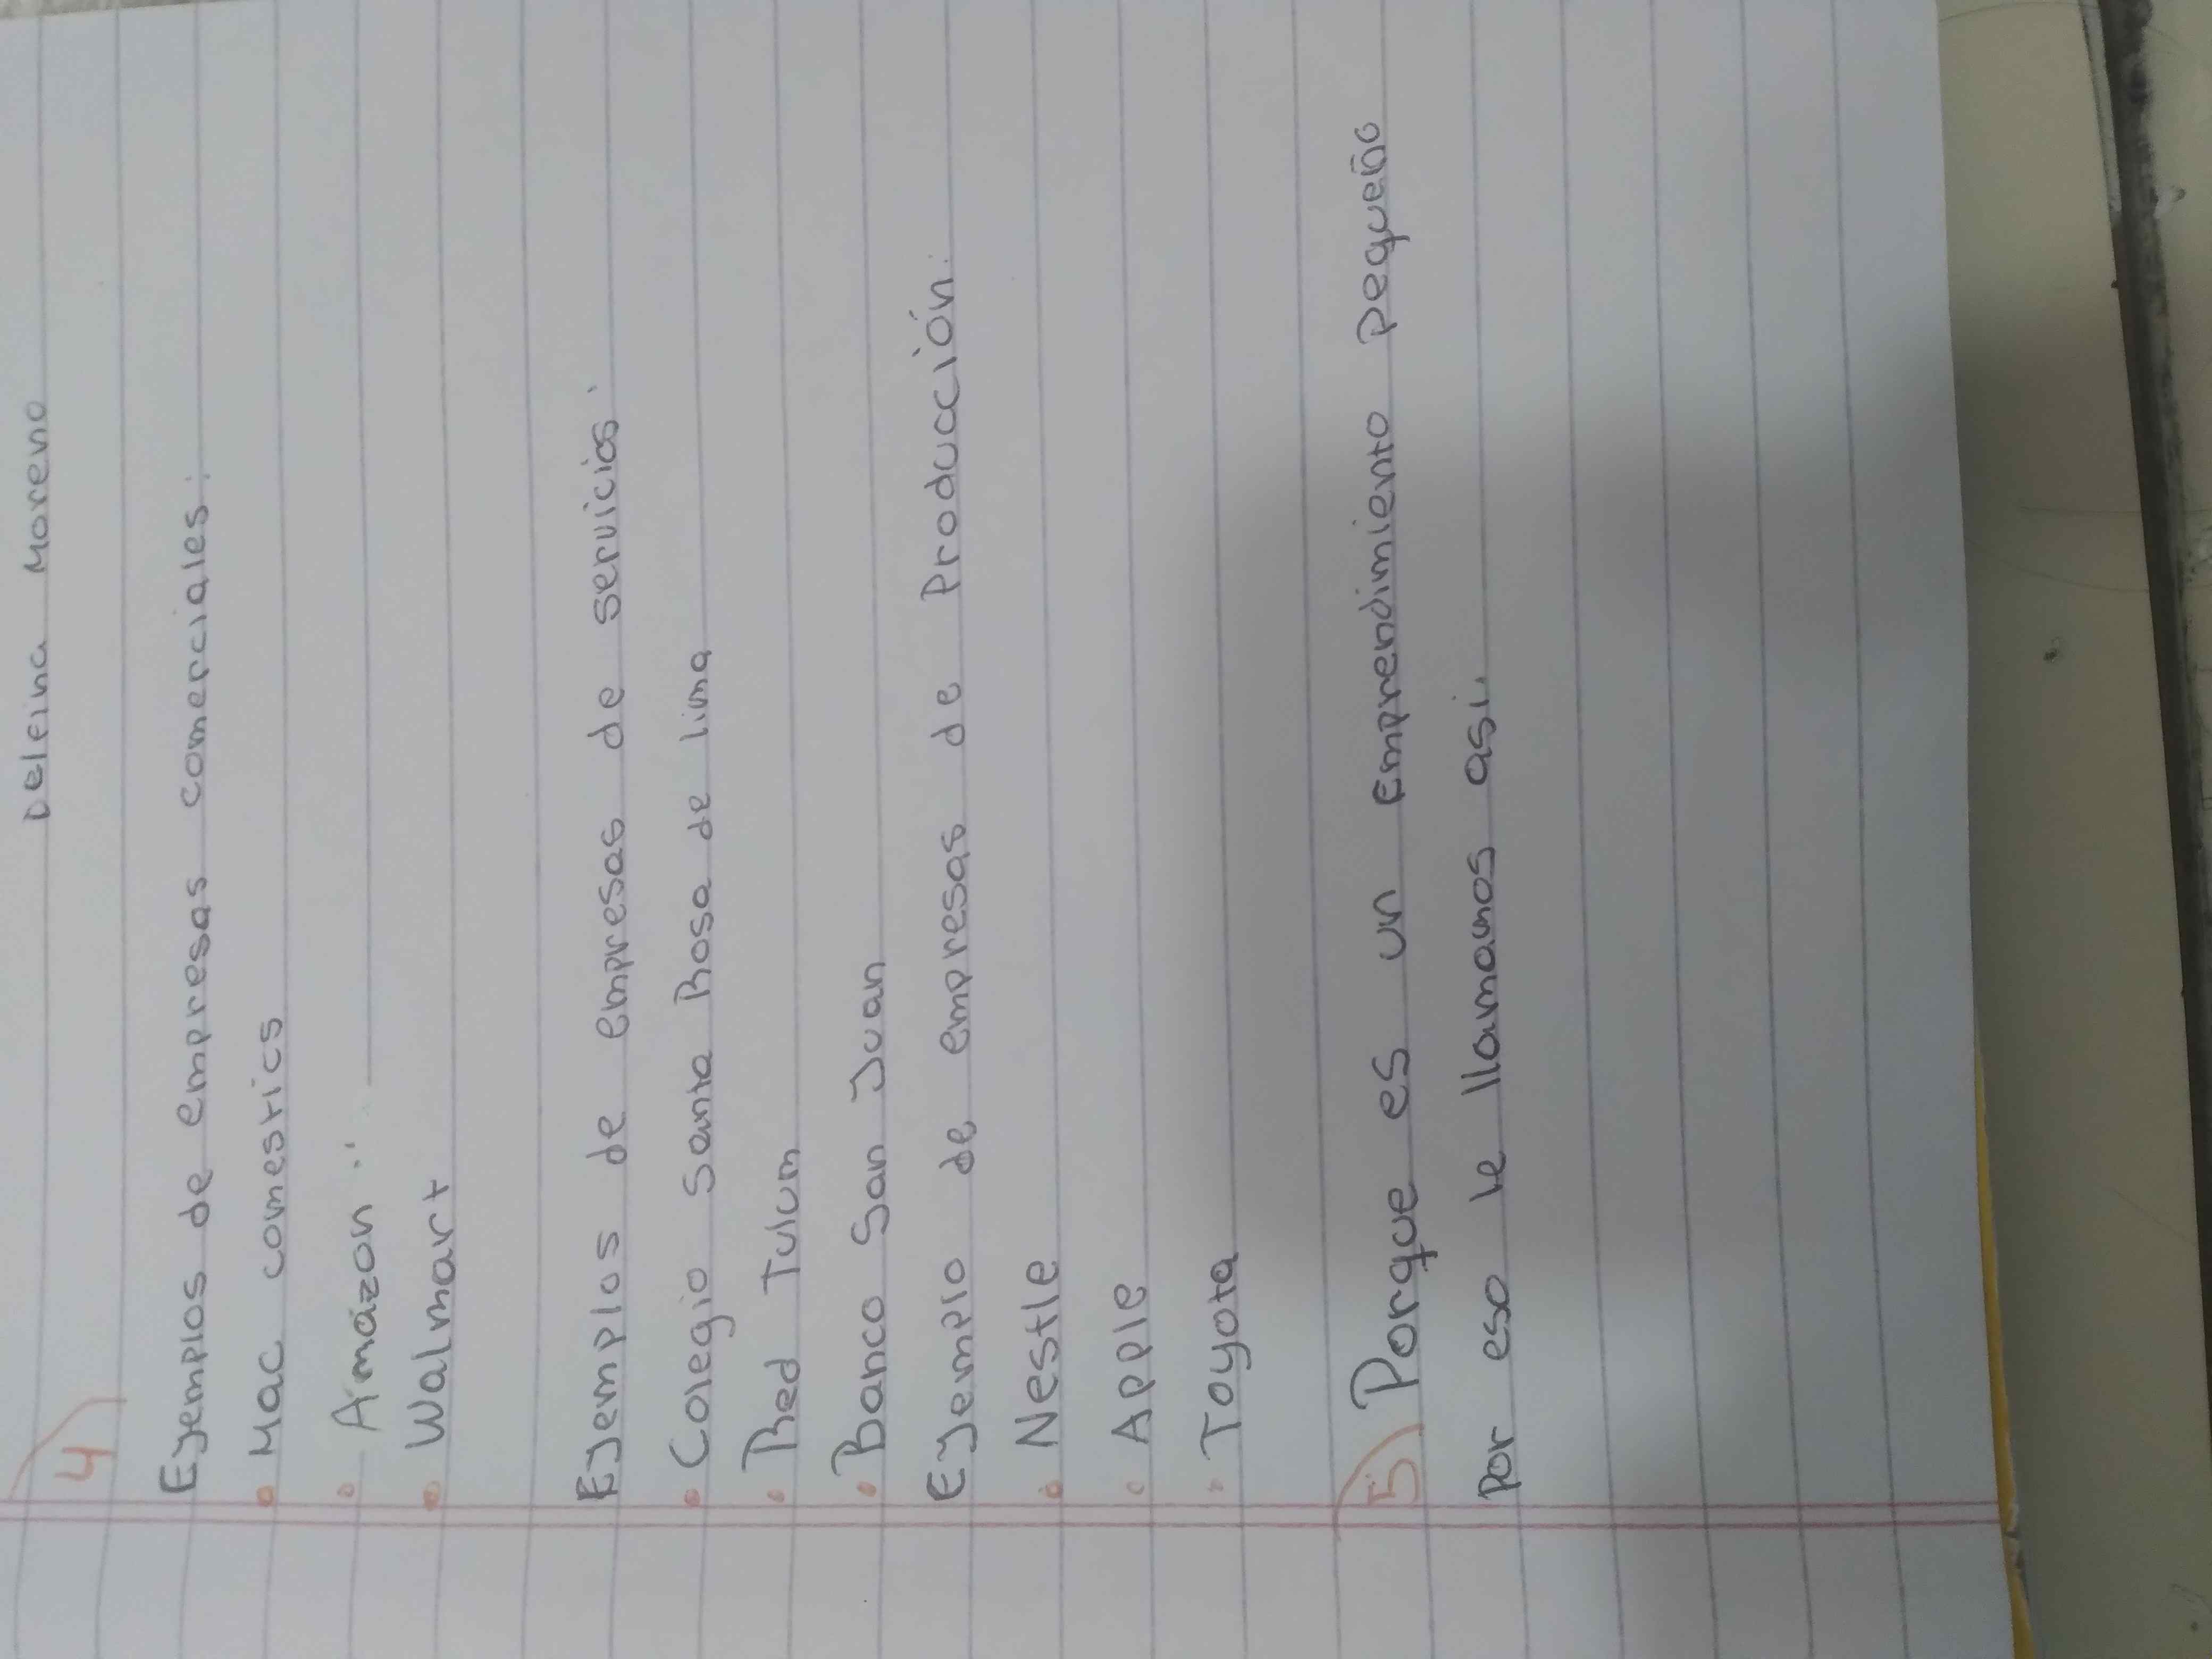 Delfina Moreno
4
Ejemplos de empresas comerciales:
• Mac comestics
• Amazon
• Walmart
Ejemplos de empresas de servicios.
• Colegio Santa Rosa de lima
• Red Tulum
• Banco San Juan
Ejemplo de empresas de Producción:
• Nestle
• Apple
• Toyota
5) Porque es un Emprendimiento pequeño
por eso le llamamos asi.